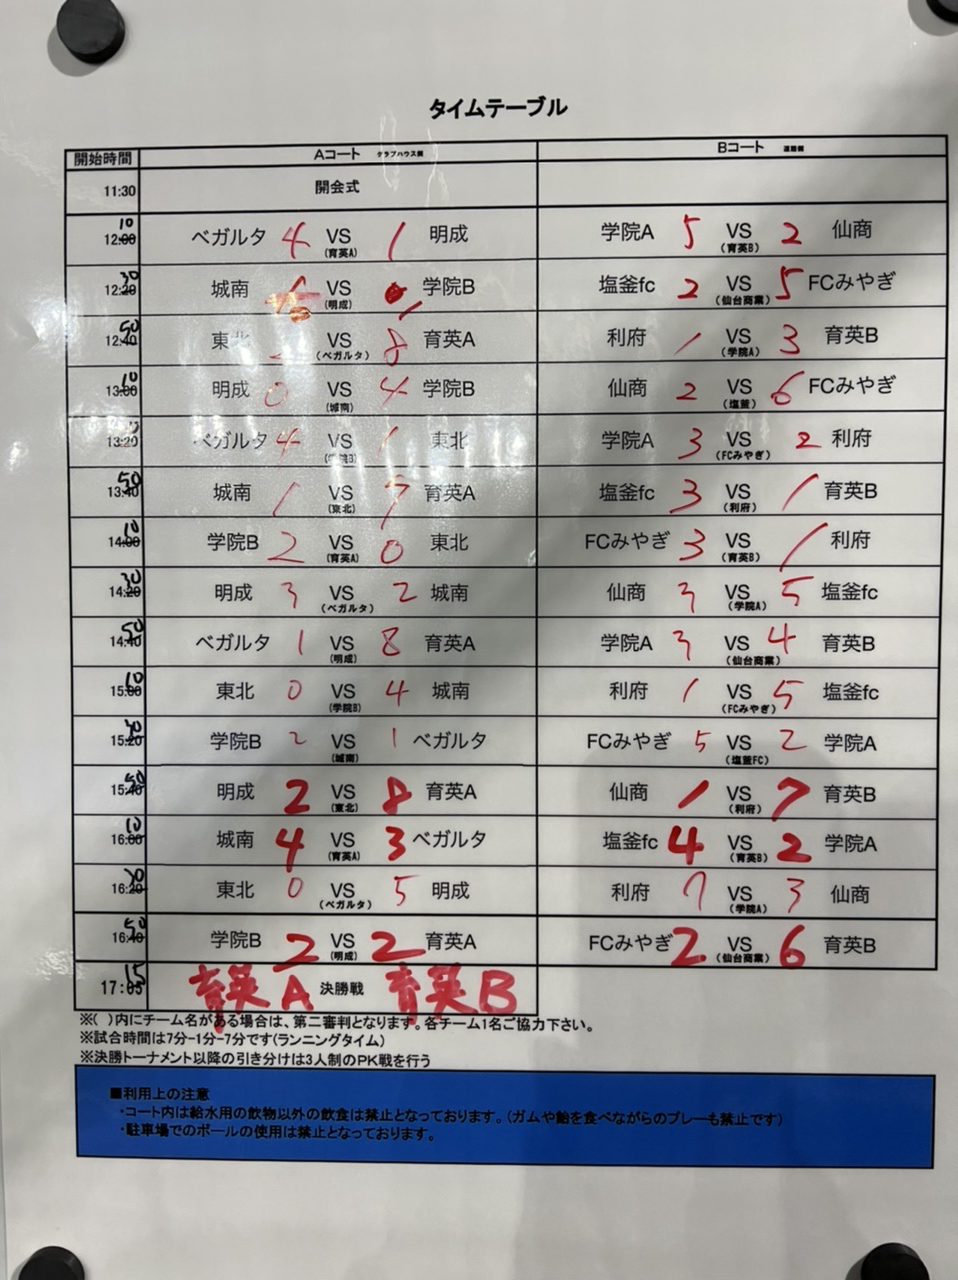 タイムテーブル
開始時間 Aコート クラブハウス側 Bコート 道路側
11:30 開会式
10
12:00 ベガルタ 4 VS 1 明成 学院A 5 VS 2 仙商
(育英A) (育英B)
30
12:20 城南 VS 学院B 塩釜fc 2 VS 5 FCみやぎ
(明成) (仙台商業)
50
12:40 東北 VS 8 育英A 利府 1 VS 3 育英B
(ベガルタ) (学院A)
10
13:00 明成 0 VS 4 学院B 仙商 2 VS 6 FCみやぎ
(城南) (塩釜)
13:20 ベガルタ 4 VS 1 東北 学院A 3 VS 2 利府
(学院B) (FCみやぎ)
50
13:40 城南 1 VS 7 育英A 塩釜fc 3 VS 1 育英B
(東北) (利府)
10
14:00 学院B 2 VS 0 東北 FCみやぎ 3 VS 1 利府
(育英A) (育英B)
30
14:20 明成 3 VS 2 城南 仙商 3 VS 5 塩釜fc
(ベガルタ) (学院A)
50
14:40 ベガルタ 1 VS 8 育英A 学院A 3 VS 4 育英B
(明成) (仙台商業)
10
15:00 東北 0 VS 4 城南 利府 1 VS 5 塩釜fc
(学院B) (FCみやぎ)
30
15:20 学院B 2 VS 1 ベガルタ FCみやぎ 5 VS 2 学院A
(城南) (塩釜FC)
50
15:40 明成 2 VS 8 育英A 仙商 1 VS 7 育英B
(東北) (利府)
10
16:00 城南 4 VS 3 ベガルタ 塩釜fc 4 VS 2 学院A
(育英A) (育英B)
30
16:20 東北 0 VS 5 明成 利府 7 VS 3 仙商
(ベガルタ) (学院A)
50
16:40 学院B 2 VS 2 育英A FCみやぎ 2 VS 6 育英B
(明成) (仙台商業)
15
17:05 育英A 決勝戦 育英B
※( )内にチーム名がある場合は、第二審判となります。各チーム1名ご協力下さい。
※試合時間は7分-1分-7分です(ランニングタイム)
※決勝トーナメント以降の引き分けは3人制のPK戦を行う
■利用上の注意
・コート内は給水用の飲物以外の飲食は禁止となっております。(ガムや飴を食べながらのプレーも禁止です)
・駐車場でのボールの使用は禁止となっております。